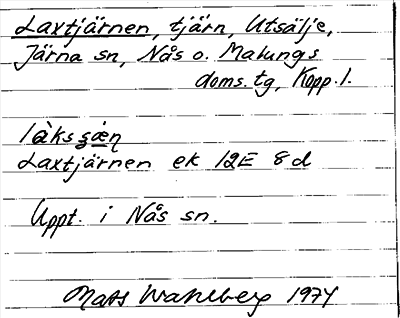 Laxtjärnen, tjärn, Utsälje,
Järna sn, Nås o. Malungs
doms.tg, Kopp. l.
làksʒæ̀ṇ
Laxtjärnen ek 12E 8d
Uppt. i Nås sn.
Mats Wahlberg 1974